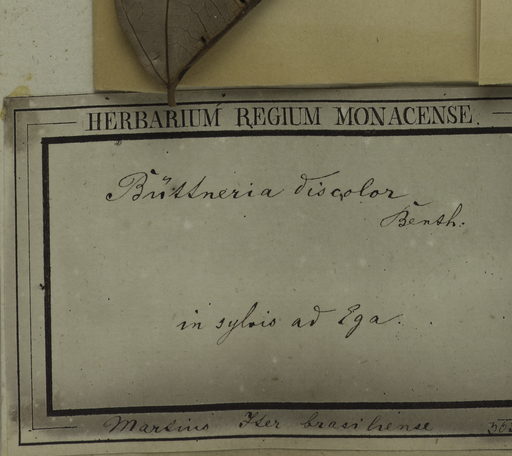 HERBARIUM REGIUM MONACENSE.
Büttneria discolor
Benth:
in sylvis ad Ega.
Martius Iter brasiliense